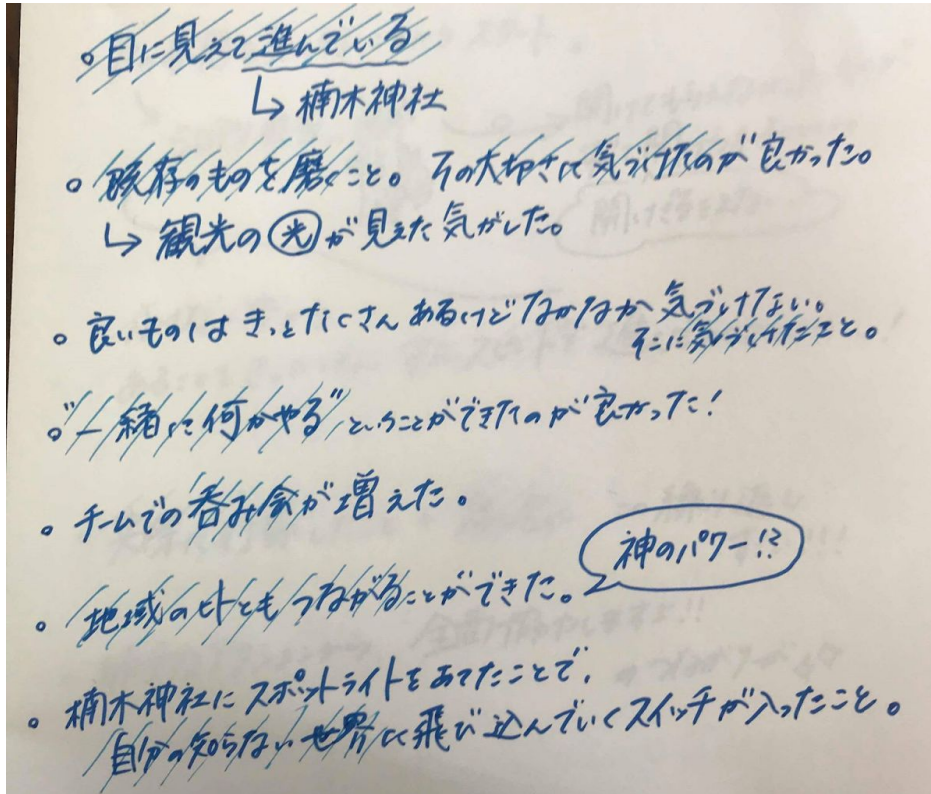 。目に見えて進んでいる
↳ 楠木神社
。既存のものを磨くこと。その大切さに気づけたのが良かった。
↳ 観光の光が見えた気がした。
。良いものはきっとたくさんあるけどなかなか気づけない。
そこに気づけたこと。
。"一緒に何かやる"ということができたのが良かった!
。チームでの呑み会が増えた。
神のパワー!?
。地域のヒトともつながることができた。
。楠木神社にスポットライトをあてたことで、
自分の知らない世界に飛び込んでいくスイッチが入ったこと。